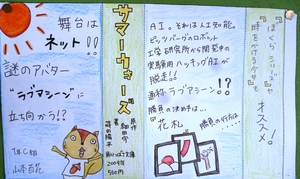 『ぼくらシリーズ』や
『時をかける少女』も
オススメ!
AI。それは人工知能。
ピッツバーグのロボット
工学研究所から開発中の
実験用ハッキングAIが
脱走!!
通称ラブマシーン!?
勝負の決め手は…
"花札"
勝負の行方は…
サマーウォーズ
原作
細田守
角川つばさ文庫
200ページ
560円
舞台は
ネット!!
謎のアバター
"ラブマシーン"に
立ち向かう!?
1年C組